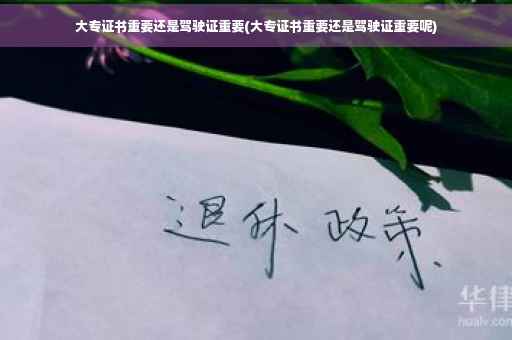 大专证书重要还是驾驶证重要(大专证书重要还是驾驶证重要呢)
退休 政策
华律
hualv.com